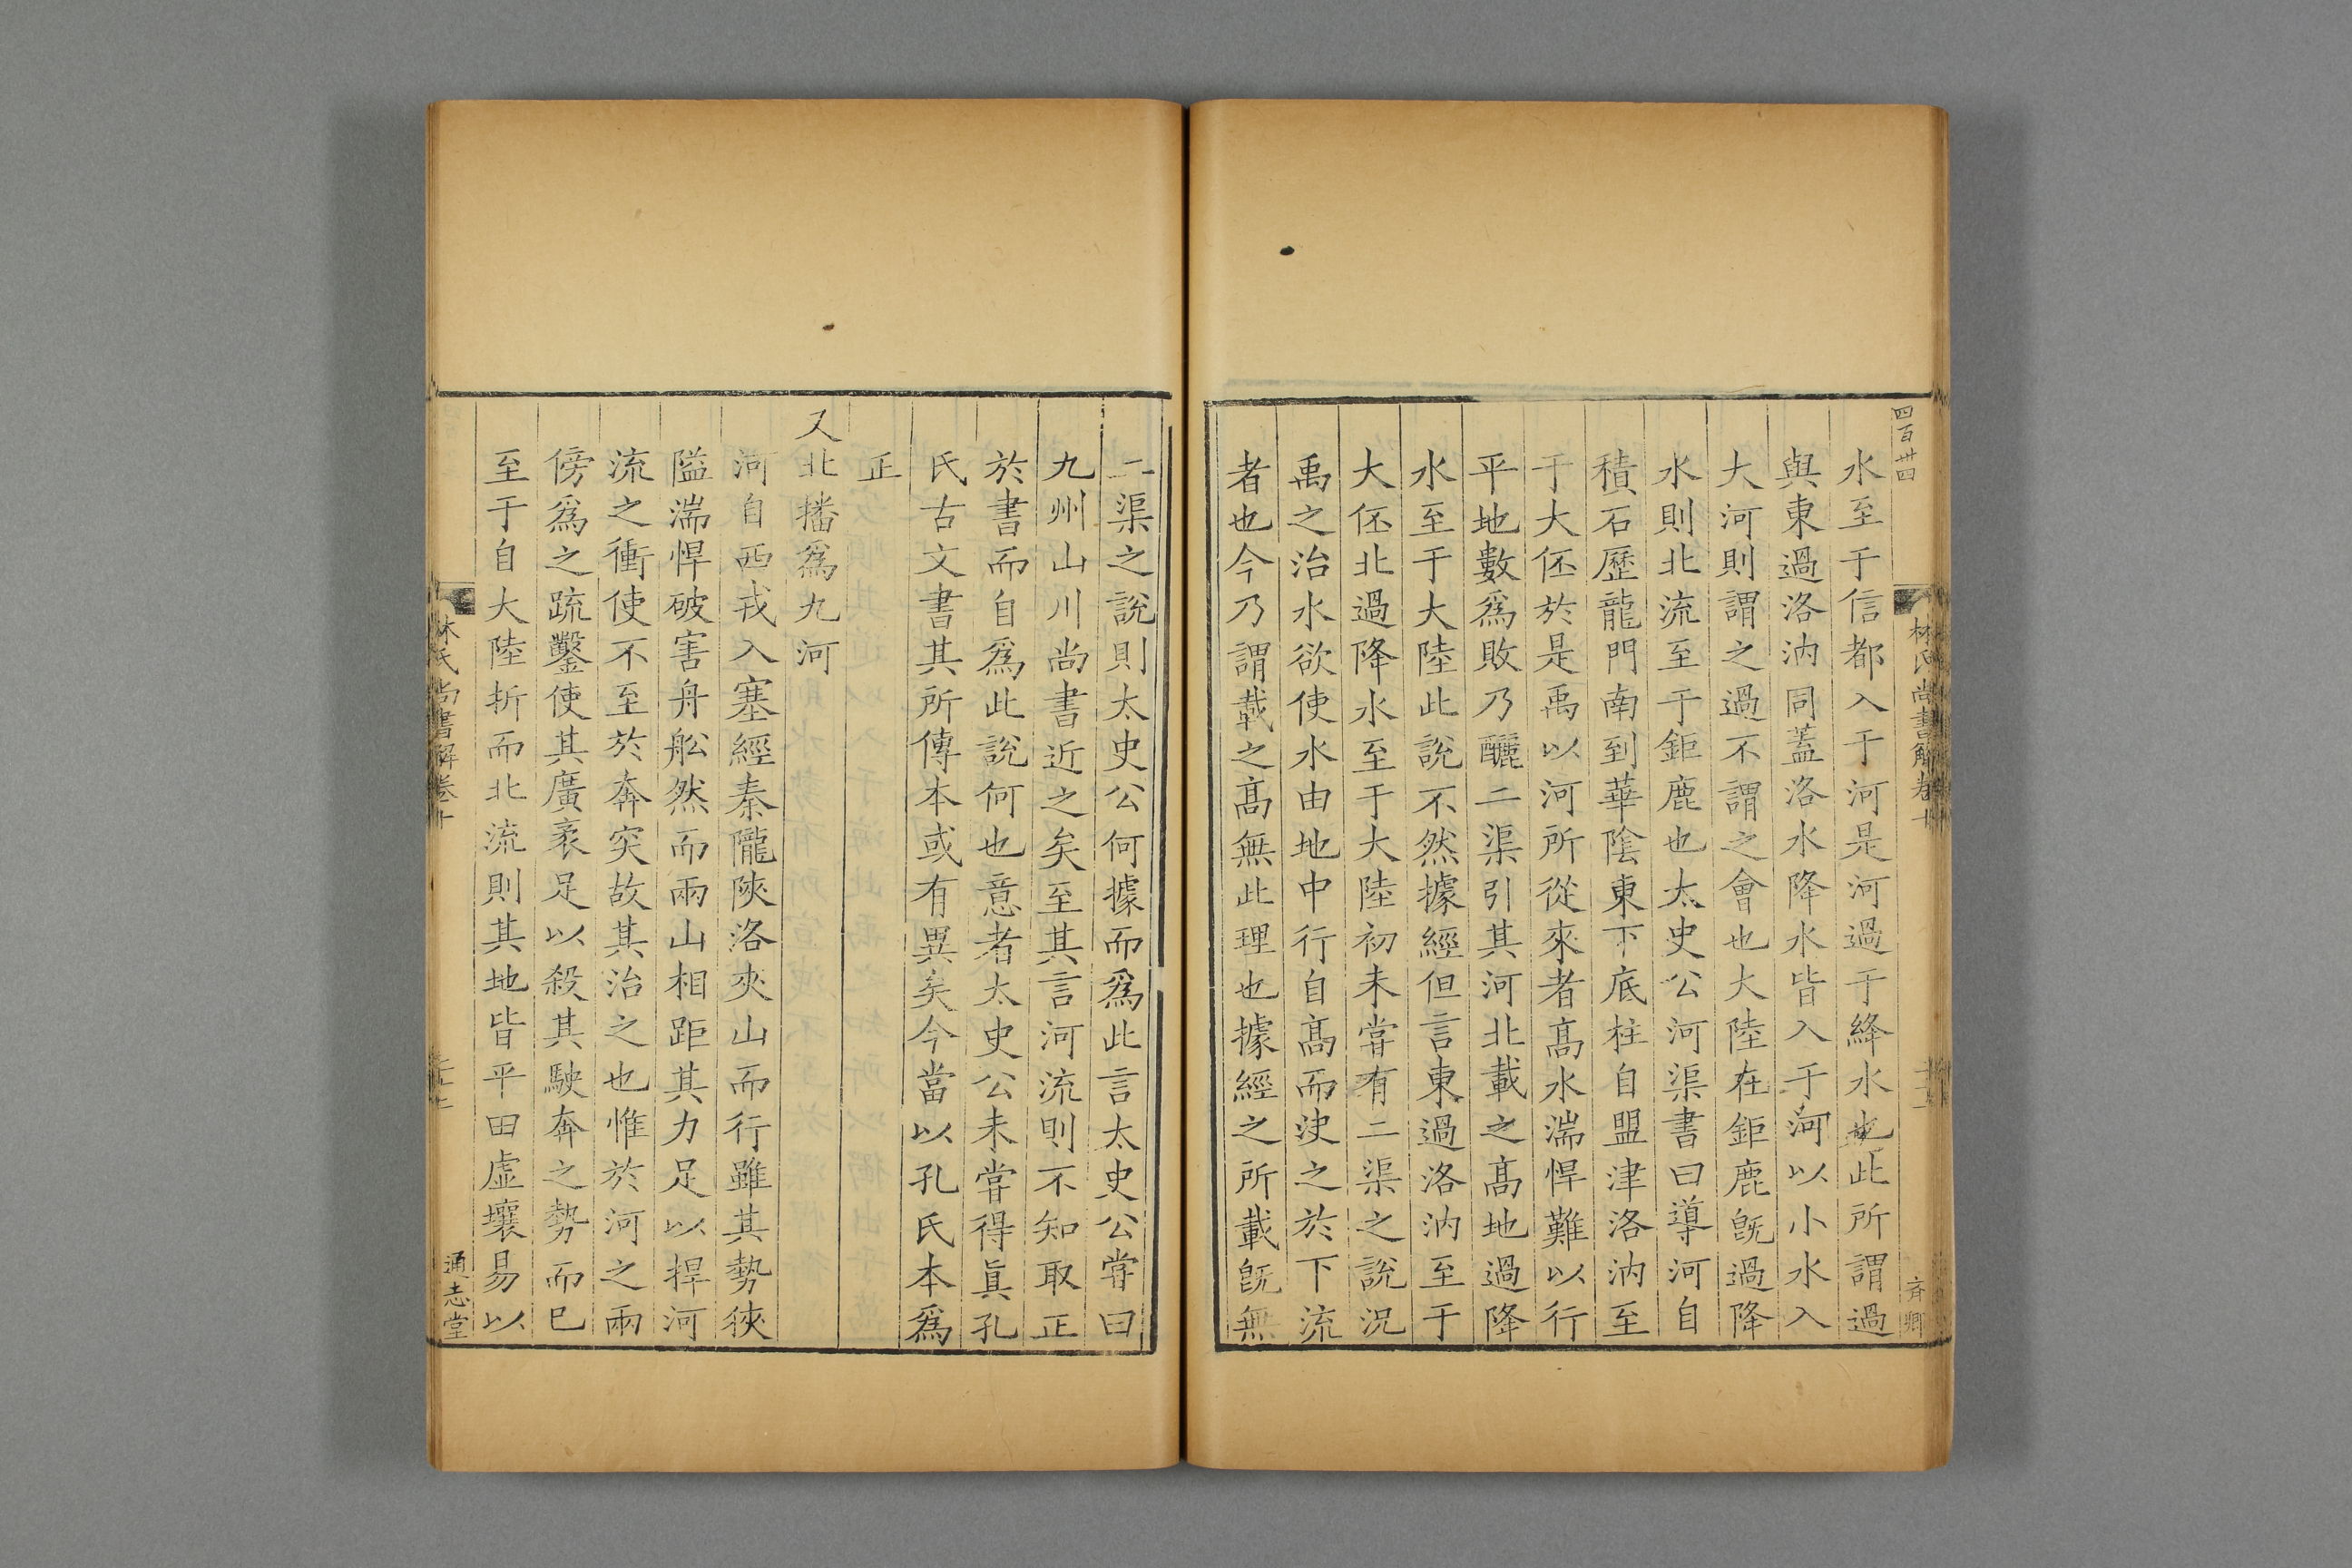 四百卄四
林氏尚書解卷十
齊卿
水至于信都入于河是河過于絳水也此所謂過
與東過洛汭同蓋洛水降水皆入于河以小水入
大河則謂之過不謂之會也大陸在鉅鹿旣過降
水則北流至于鉅鹿也太史公河渠書曰導河自
積石歷龍門南到華陰東下底柱自盟津洛汭至
于大伾於是禹以河所從來者髙水湍悍難以行
平地數爲敗乃釃二渠引其河北載之髙地過降
水至于大陸此說不然據經但言東過洛汭至于
大伾北過降水至于大陸初未嘗有二渠之說況
禹之治水欲使水由地中行自髙而決之於下流
者也今乃謂載之髙無此理也據經之所載旣無
二渠之說則太史公何據而爲此言太史公嘗曰
九州山川尚書近之矣至其言河流則不知取正
於書而自爲此說何也意者太史公未嘗得眞孔
氏古文書其所傳本或有異矣今當以孔氏本爲
正
又北播爲九河
河自西戎入塞經秦隴陝洛夾山而行雖其勢狹
隘湍悍破害舟舩然而兩山相距其力足以捍河
流之衝使不至於奔突故其治之也惟於河之兩
傍爲之疏鑿使其廣袤足以殺其駛奔之勢而已
至于自大陸折而北流則其地皆平田虛壤易以
林氏尚書解卷十
通志堂